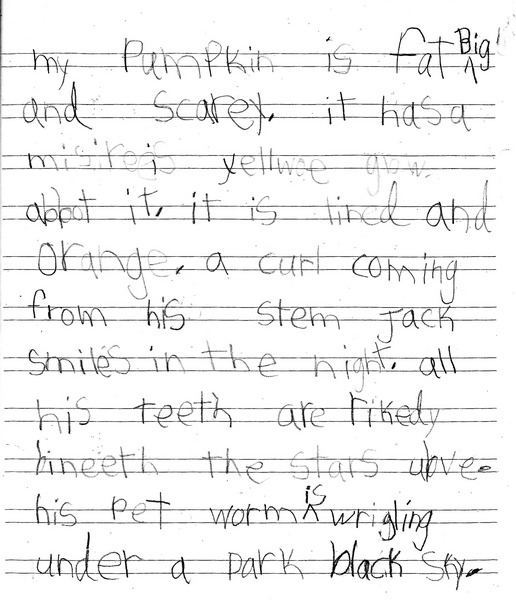 my Pumpkin is fat Big
and scarey. it has a
misireis yellwoe glow.
abbot it. it is lined and
orange. a curl coming
from his stem jack
smiles in the night. all
his teeth are rikedy
bineeth the stars ubve.
his pet worm is wrigling
under a park black sky.